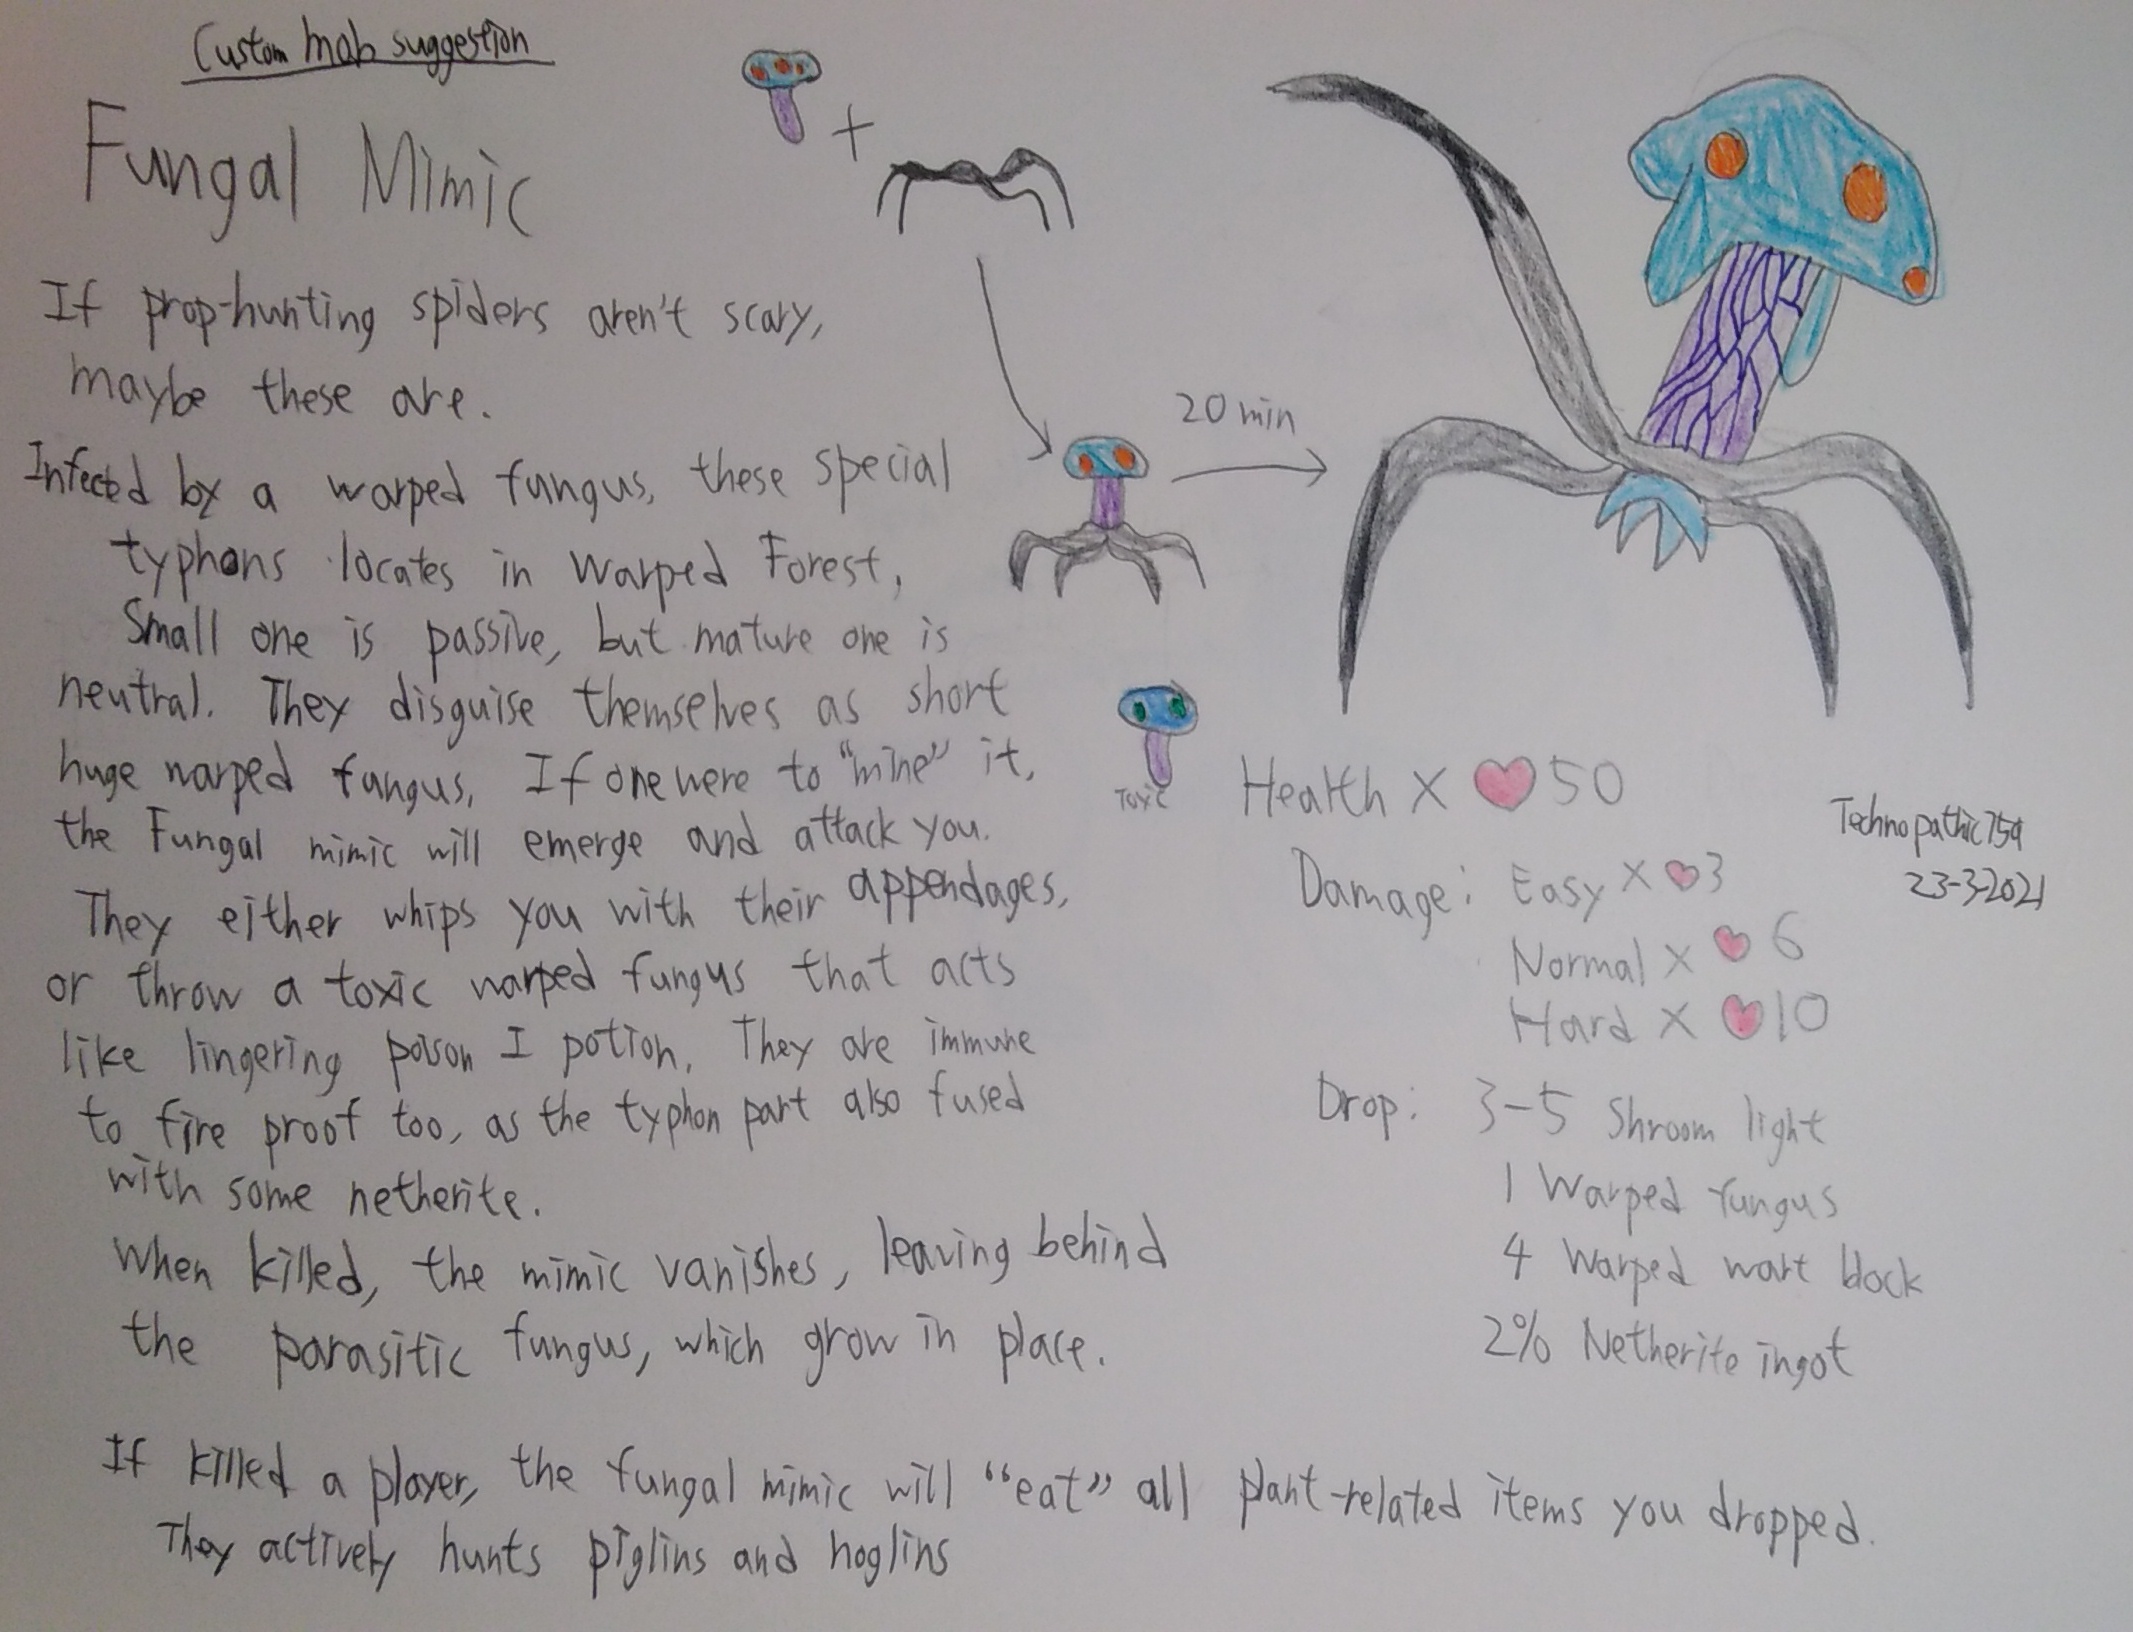 Custom mob suggestion
Fungal Mimic
If prop-hunting spiders aren't scary,
maybe these are.
Infected by a warped fungus, these special
typhons locates in Warped Forest,
Small one is passive, but mature one is
neutral. They disguise themselves as short
huge warped fungus. If one were to "mine" it,
the Fungal mimic will emerge and attack you.
They either whips you with their appendages,
or throw a toxic warped fungus that acts
like lingering poison I potion. They are immune
to fire proof too, as the typhon part also fused
with some netherite.
When killed, the mimic vanishes, leaving behind
the parasitic fungus, which grow in place.
If killed a player, the fungal mimic will "eat" all plant-related items you dropped.
They actively hunts piglins and hoglins
+
20 min
Toxic
Health X ♥ 50
Damage: Easy X ♥ 3
Normal X ♥ 6
Hard X ♥ 10
Drop: 3-5 Shroom light
1 Warped Fungus
4 Warped wart block
2% Netherite ingot
Technopathic759
23-3-2021